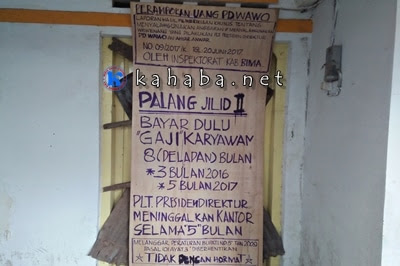 PERAMPOKAN UANG PD WAWO
LAPORAN HASIL PEMERIKSAAN KHUSUS TENTANG
PD WAWO
NO 09.2017/K TGL 20 JUNI 2017
OLEH INSPEKTORAT KAB BIMA
kahaba.net
PALANG JILID II
BAYAR DULU
"GAJI" KARYAWAN
8 (DELAPAN) BULAN
*3 BULAN 2016
*5 BULAN 2017
PLT. PRESIDEN DIREKTUR
MENINGGALKAN KANTOR
SELAMA "5" BULAN
MELANGGAR PERATURAN BUPATI
DIBERHENTIKAN
☆TIDAK DENGAN HORMAT☆